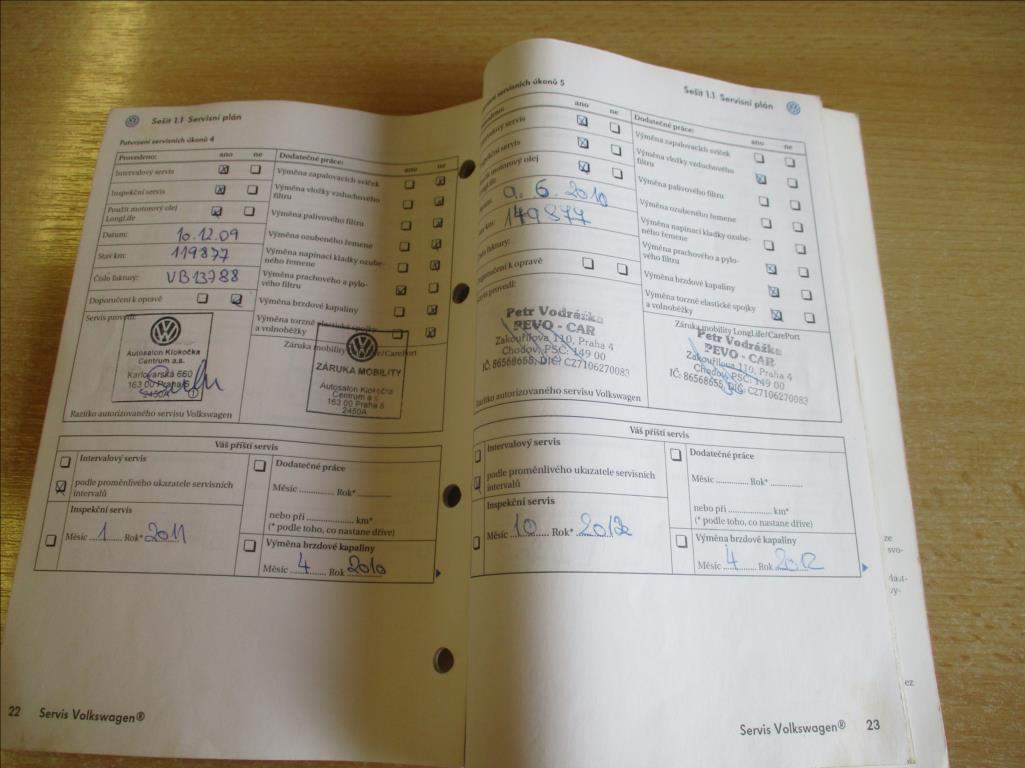 Sešit 1.1 Servisní plán
Potvrzení servisních úkonů 4
Provedeno: ano ne
Intervalový servis
Inspekční servis
Použit motorový olej
LongLife
Datum: 10.12.09
Stav km: 119877
Číslo faktury: VB13788
Doporučení k opravě
Servis provedl:
Autosalon Klokočka
Centrum a.s.
Karlovarská 660
163 00 Praha 6
2450A
Razítko autorizovaného servisu Volkswagen
Dodatečné práce: ano ne
Výměna zapalovacích svíček
Výměna vložky vzduchového
filtru
Výměna palivového filtru
Výměna ozubeného řemene
Výměna napínací kladky ozube-
ného řemene
Výměna prachového a pylo-
vého filtru
Výměna brzdové kapaliny
Výměna torzně elastické spojky
a volnoběžky
Záruka mobility LongLife/CarePort
ZÁRUKA MOBILITY
Autosalon Klokočka
Centrum a.s.
163 00 Praha 6
2450A
Váš příští servis
Intervalový servis
podle proměnlivého ukazatele servisních
intervalů
Inspekční servis
Měsíc 1 Rok* 2011
Dodatečné práce
Měsíc .............. Rok* ...........
nebo při ................... km*
(* podle toho, co nastane dříve)
Výměna brzdové kapaliny
Měsíc 4 Rok 2010
22 Servis Volkswagen®
Sešit 1.1 Servisní plán
servisních úkonů 5
ano ne
servis
servis
motorový olej
9. 6. 2010
km: 149877
faktury:
k opravě
Servis provedl:
Petr Vodrážka
PEVO - CAR
Zakouřilova 110, Praha 4
Chodov, PSČ: 149 00
IČ: 86568655, DIČ: CZ7106270083
Razítko autorizovaného servisu Volkswagen
Dodatečné práce: ano ne
Výměna zapalovacích svíček
Výměna vložky vzduchového
filtru
Výměna palivového filtru
Výměna ozubeného řemene
Výměna napínací kladky ozube-
ného řemene
Výměna prachového a pylo-
vého filtru
Výměna brzdové kapaliny
Výměna torzně elastické spojky
a volnoběžky
Záruka mobility LongLife/CarePort
Petr Vodrážka
PEVO - CAR
Zakouřilova 110, Praha 4
Chodov, PSČ: 149 00
IČ: 86568655, DIČ: CZ7106270083
Váš příští servis
Intervalový servis
podle proměnlivého ukazatele servisních
intervalů
Inspekční servis
Měsíc 10 Rok* 2012
Dodatečné práce
Měsíc .............. Rok* ...........
nebo při ................... km*
(* podle toho, co nastane dříve)
Výměna brzdové kapaliny
Měsíc 4 Rok 2012
Servis Volkswagen® 23